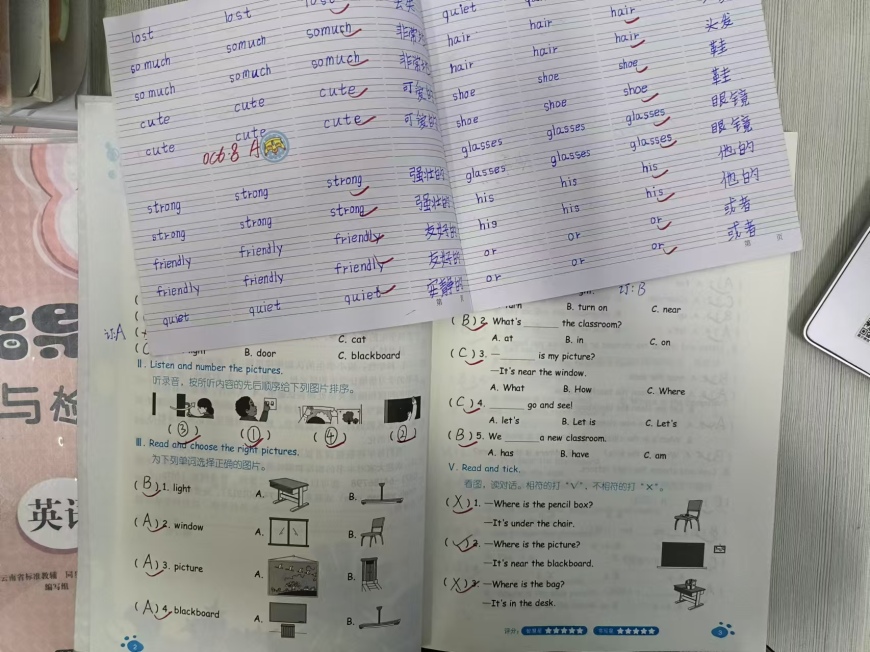 lost lost lost 去失
so much so much so much 非常
so much so much so much 非常
cute cute cute 可爱的
cute cute cute 可爱的
Oct.8 A
strong strong strong 强壮的
strong strong strong 强壮的
friendly friendly friendly 友好的
friendly friendly friendly 友好的
quiet quiet quiet 安静的
第
quiet
hair hair hair 头发
hair hair hair
shoe shoe shoe 鞋
shoe shoe shoe 鞋
glasses glasses glasses 眼镜
glasses glasses glasses 眼镜
his his his 他的
his his his 他的
or or or 或者
or or or 或者
第 页
订:A
C. cat
(C) B. door C. blackboard
Ⅱ. Listen and number the pictures.
听录音，按所听内容的先后顺序给下列图片排序。
(③) (①) (④) (②)
Ⅲ. Read and choose the right pictures.
为下列单词选择正确的图片。
(B) 1. light A. B.
(A) 2. window A. B.
(A) 3. picture A. B.
(A) 4. blackboard A. B.
2
订:B
turn B. turn on C. near
(B) 2. What's ______ the classroom?
A. at B. in C. on
(C) 3. —______ is my picture?
—It's near the window.
A. What B. How C. Where
(C) 4. ______ go and see!
A. let's B. Let is C. Let's
(B) 5. We ______ a new classroom.
A. has B. have C. am
Ⅴ. Read and tick.
看图，读对话。相符的打“√”，不相符的打“×”。
(X) 1. —Where is the pencil box?
—It's under the chair.
(√) 2. —Where is the picture?
—It's near the blackboard.
(X) 3. —Where is the bag?
—It's in the desk.
评分:
3
指导
与检
英语
云南省标准教辅
编写组